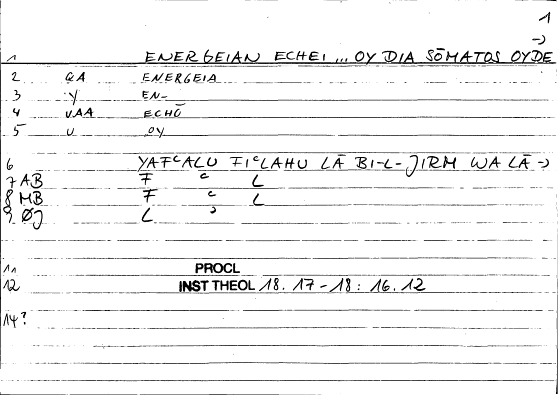 1
->
1 ENERGEIAN ECHEI ... OY DIA SŌMATOS OYDE
2 GA ENERGEIA
3 Y EN-
4 VAA ECHŌ
5 U OY
6 YAFᶜALU FIᶜLAHU LĀ BI-L-JIRM WA LĀ ->
7 AB F ᶜ L
8 MB F ᶜ L
9 ØJ L ʾ
11 PROCL
12 INST THEOL 18. 17-18: 16.12
14?